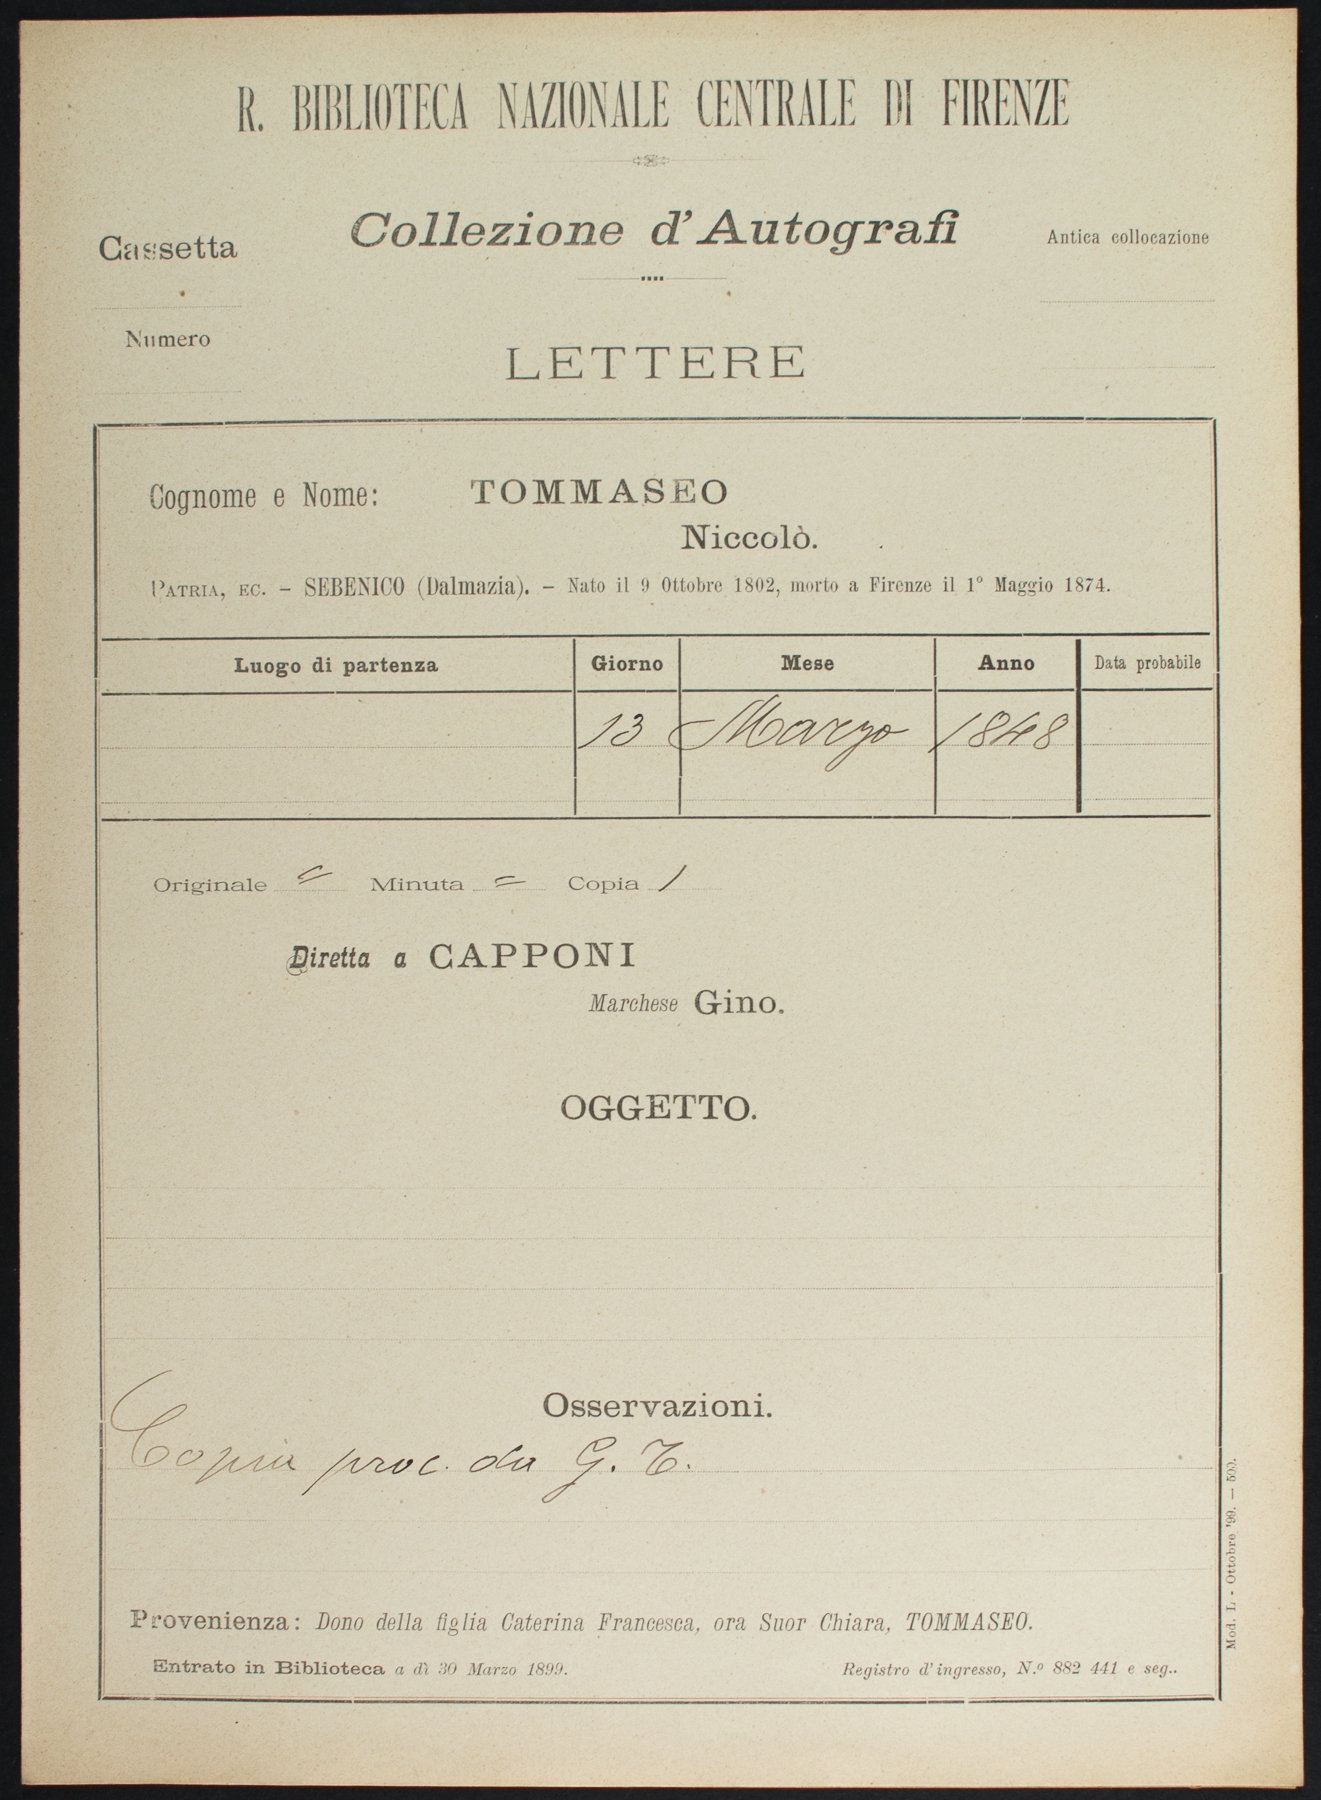 R. BIBLIOTECA NAZIONALE CENTRALE DI FIRENZE
Cassetta
Collezione d'Autografi
Antica collocazione
Numero
LETTERE
Cognome e Nome: TOMMASEO
Niccolò.
PATRIA, EC. – SEBENICO (Dalmazia). – Nato il 9 Ottobre 1802, morto a Firenze il 1º Maggio 1874.
Luogo di partenza Giorno Mese Anno Data probabile
13 Marzo 1848
Originale = Minuta = Copia 1
Diretta a CAPPONI
Marchese Gino.
OGGETTO.
Osservazioni.
Copia proc. da G. T.
Provenienza: Dono della figlia Caterina Francesca, ora Suor Chiara, TOMMASEO.
Entrato in Biblioteca a dì 30 Marzo 1899. Registro d'ingresso, N.º 882 441 e seg..
Mod. L - Ottobre '99. — 500.